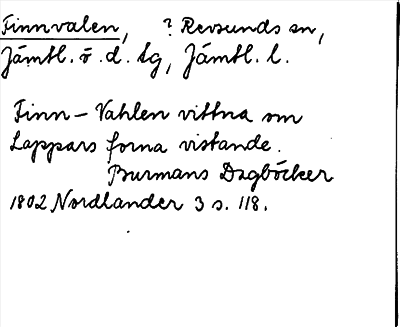 Finnvalen, ? Revsunds sn,
Jämtl. ö. d. tg, Jämtl. l.
Finn - Vahlen vittna om
Lappars forna vistande.
Burmans Dagböcker
1802 Nordlander 3 s. 118.